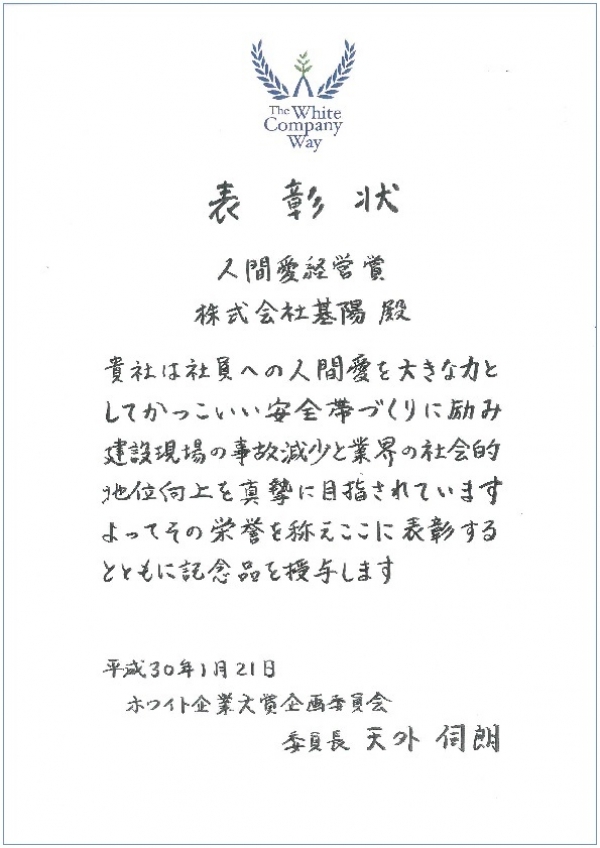 The White
Company
Way
表彰状
人間愛経営賞
株式会社基陽 殿
貴社は社員への人間愛を大きな力と
してかっこいい安全帯づくりに励み
建設現場の事故減少と業界の社会的
地位向上を真摯に目指されています
よってその栄誉を称えここに表彰する
とともに記念品を授与します
平成30年1月21日
ホワイト企業大賞企画委員会
委員長 天外 伺朗